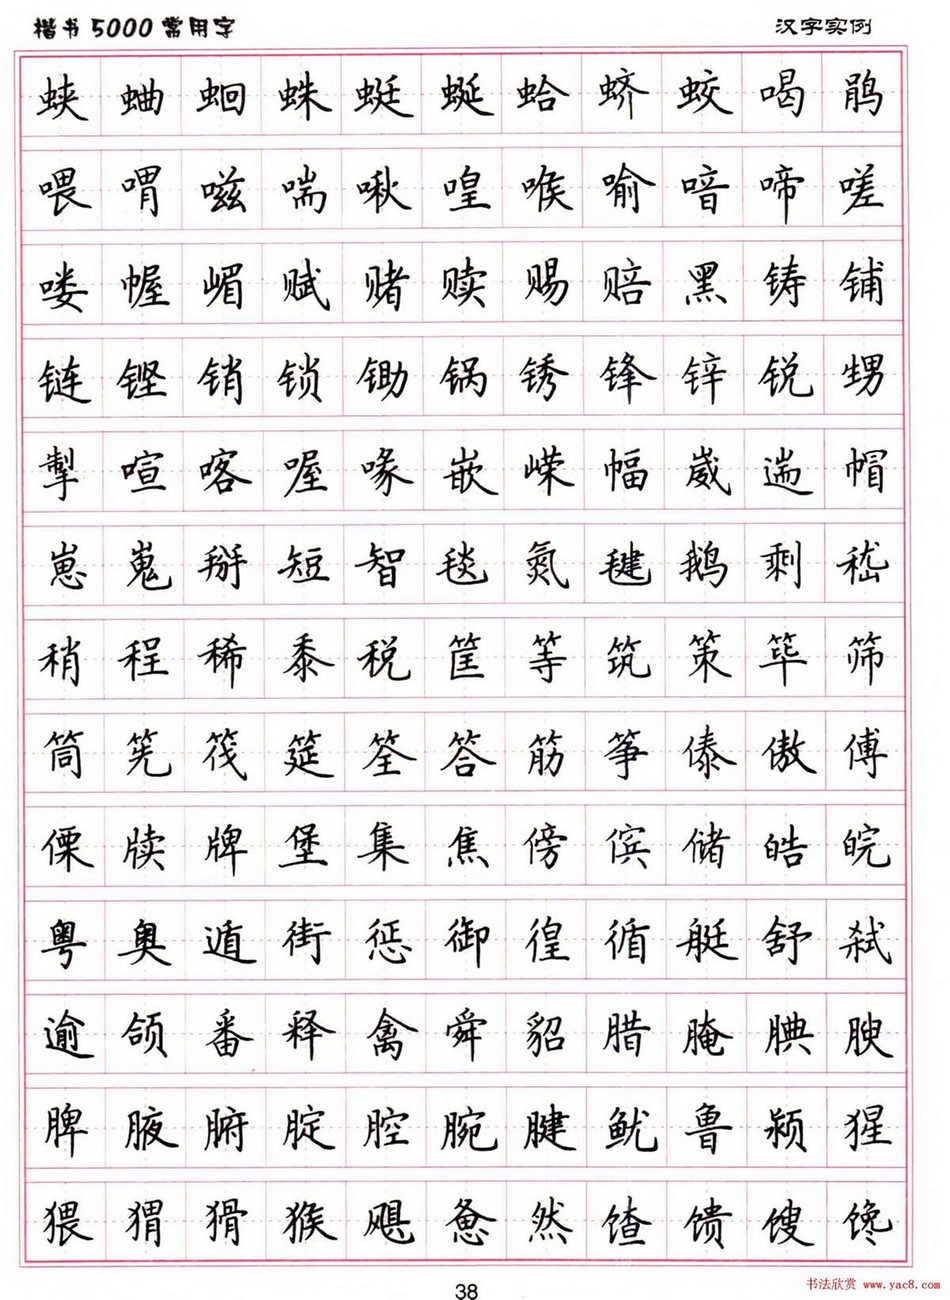 楷书5000常用字 汉字实例
蛱蛐蛔蛛蜓蜒蛤蛴蛟喝鹃
喂喟嗞喘啾喤喉喻喑啼嗟
喽幄嵋赋赌赎赐赔黑铸铺
链铿销锁锄锅锈锋锌锐甥
掣喧喀喔喙嵌嵘幅崴遄帽
崽嵬掰短智毯氮毽鹅剩嵇
稍程稀黍税筐等筑策筚筛
筒筅筏筵筌答筋筝傣傲傅
傈牍牌堡集焦傍傧储皓皖
粤奥遁街惩御徨循艇舒弑
逾颌番释禽舜貂腊腌腆腴
脾腋腑腚腔腕腱鱿鲁颍猩
猥猬猾猴飓惫然馇馈馊馋
38
书法欣赏 www.yac8.com